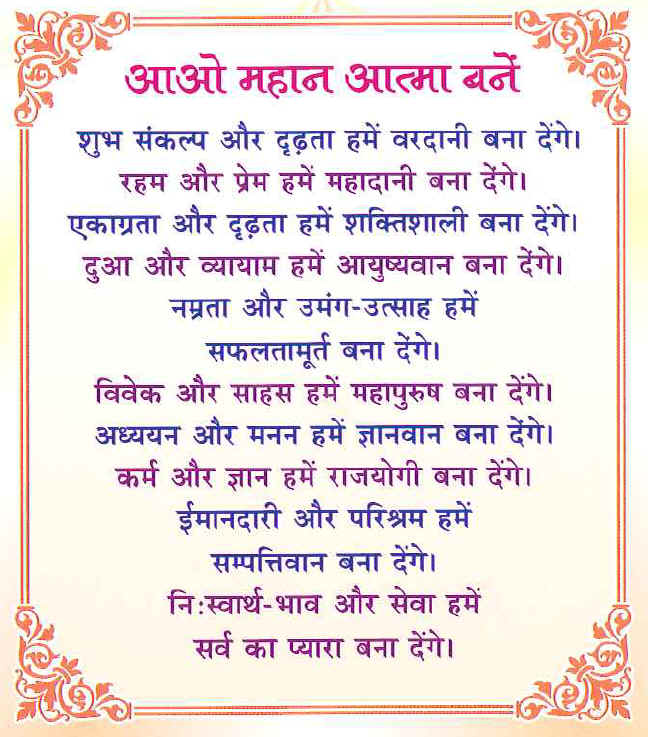 आओ महान आत्मा बनें
शुभ संकल्प और दृढ़ता हमें वरदानी बना देंगे।
रहम और प्रेम हमें महादानी बना देंगे।
एकाग्रता और दृढ़ता हमें शक्तिशाली बना देंगे।
दुआ और व्यायाम हमें आयुष्यवान बना देंगे।
नम्रता और उमंग-उत्साह हमें
सफलतामूर्त बना देंगे।
विवेक और साहस हमें महापुरुष बना देंगे।
अध्ययन और मनन हमें ज्ञानवान बना देंगे।
कर्म और ज्ञान हमें राजयोगी बना देंगे।
ईमानदारी और परिश्रम हमें
सम्पत्तिवान बना देंगे।
नि:स्वार्थ-भाव और सेवा हमें
सर्व का प्यारा बना देंगे।